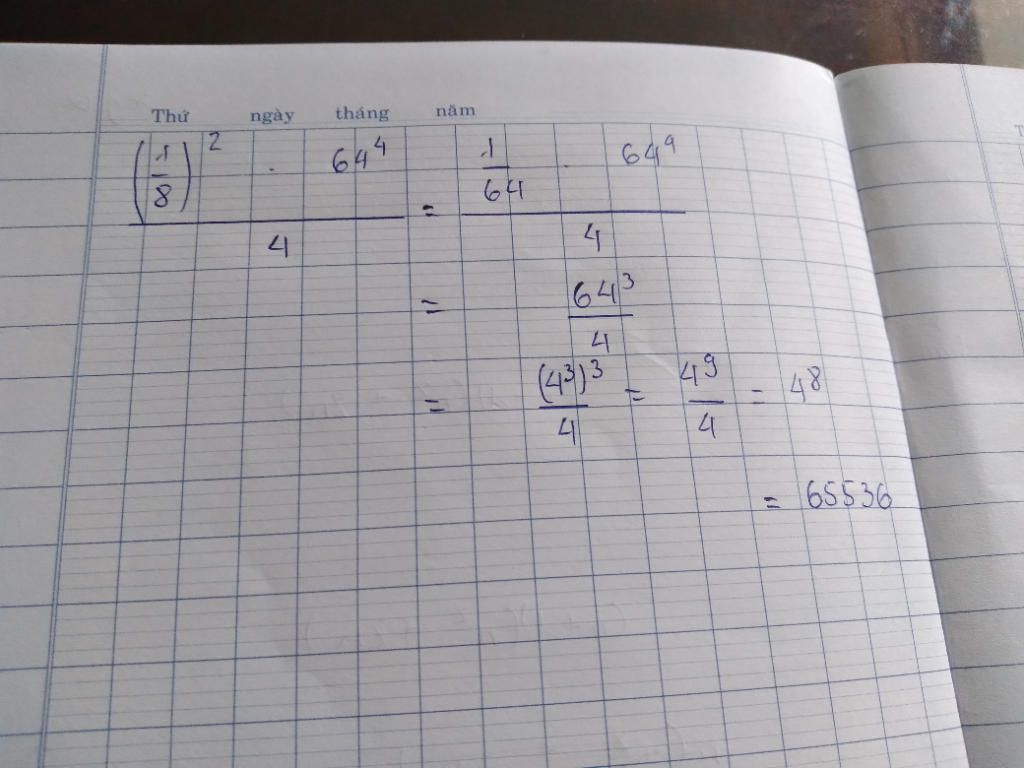 Thứ ngày tháng năm
(1/8)² . 64⁴ / 4 = 1/64 . 64⁴ / 4
= 64³ / 4
= (4³)³ / 4 = 4⁹ / 4 = 4⁸
= 65536